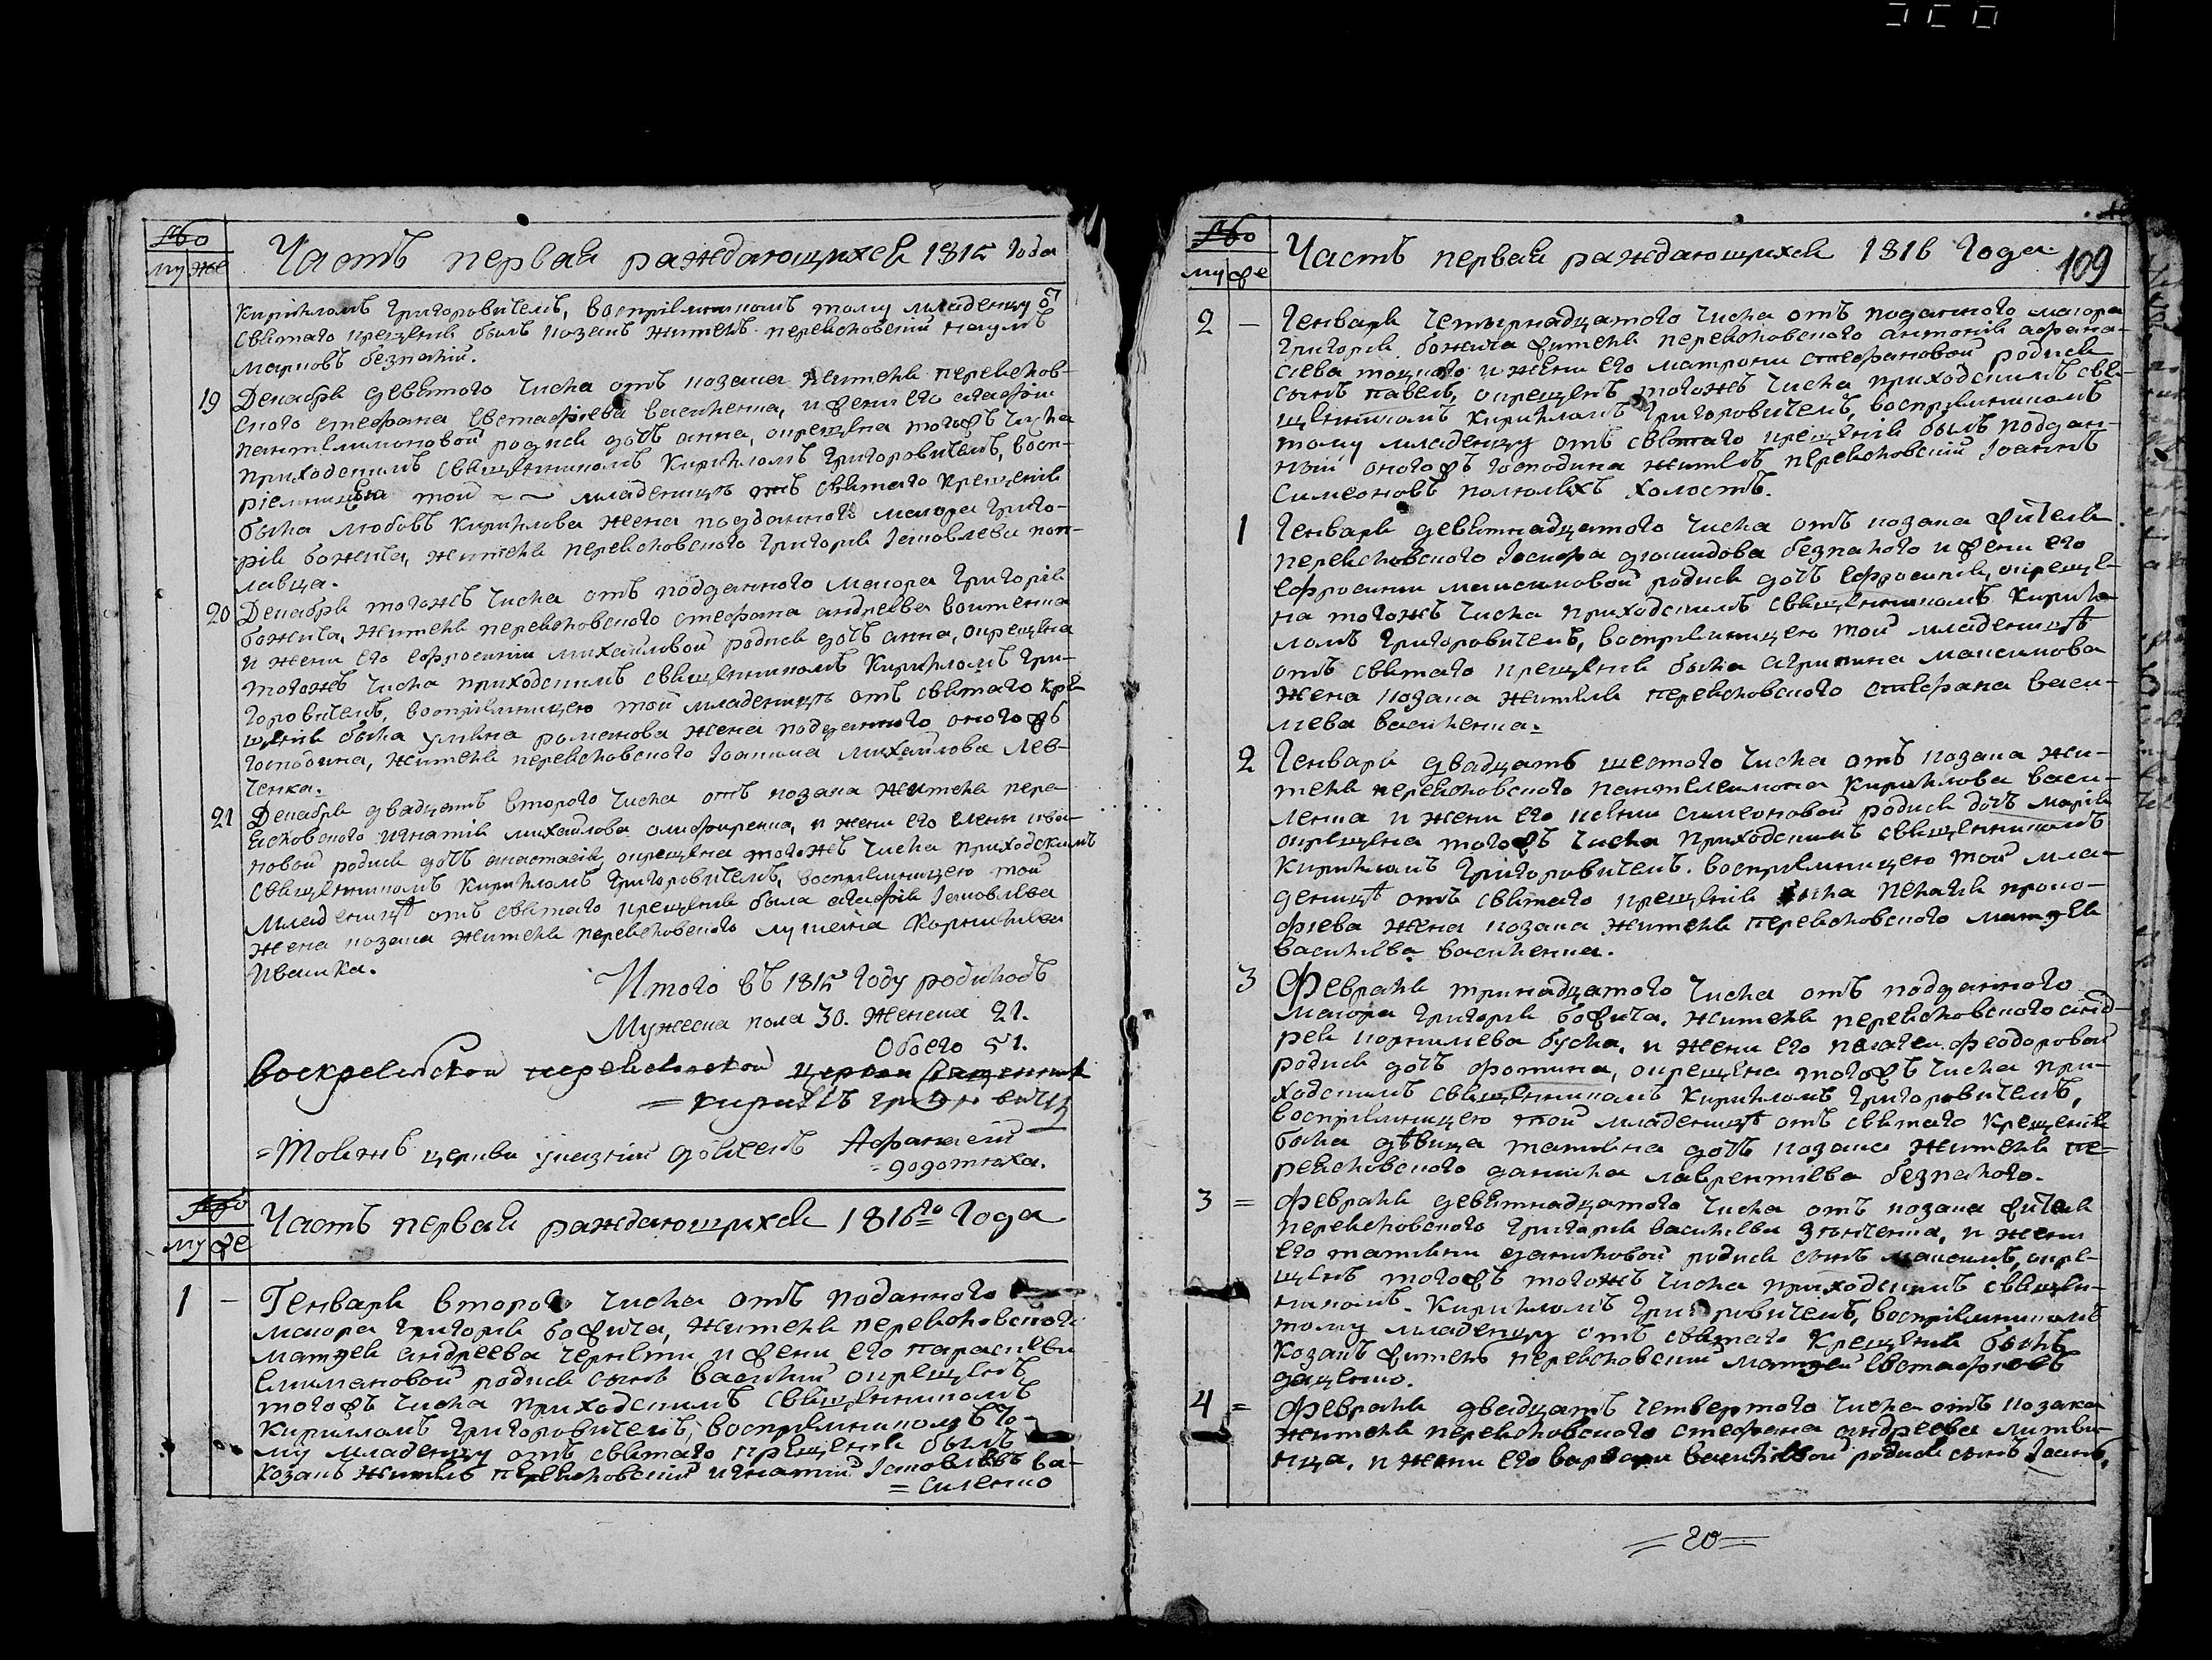 Часть первая раждающихся 1815 года
му же
Кириломъ Григоровичемъ, восприемникомъ тому младенцу о
святаго крещения былъ козакъ житель перевсковский наумъ
марковъ безпалий.
19 Декабря девятого числа отъ козака жителя перевсков-
ского стефана Евстафиева василенка, и жени его агафии
пантелимоновой родися дочь анна, окрещена тогожъ числа
приходскимъ священникомъ Кириломъ Григоровичемъ, восп-
риемницею той младенице отъ святаго крещения
была любовъ Кирилова жена подданного маиора Григо-
рия божича, жителя перевсковского Григория Iаковлева
лавца.
20 Декабря тогожъ числа отъ подданного маиора Григория
божича, жителя перевсковского стефана андреева воитенка
и жени его Ефросинии михайловой родися дочь анна, окрещена
тогожъ числа приходскимъ священникомъ Кириломъ Гри-
горовичемъ, восприемницею той младенице отъ святаго кре
щения была улияна романова жена подданного оногожъ
господина, жителя перевсковского Iоакима Михайлова Лев-
ченка.
21 Декабря двадцать второго числа отъ козака жителя пере
всковского игнатия михайлова олиференка, и жени его елени ива-
новой родися дочь анастасия, окрещена тогожъ числа приходскимъ
священникомъ Кириломъ Григоровичемъ, восприемницею той
младеницѣ отъ святаго крещения была агафия Iаковлева
жена козака жителя перевсковского лукияна Корнилиева
Ивашка.
Итого въ 1815 году родилось
Мужеска пола 30. Женска 21.
Обоего 51.
Воскресенской перевсковской церкви Священникъ
= Кирилъ Григоровичъ
= Тоеяжъ церкви указний дячекъ Афанасий
= додотюха.
Часть первая раждающихся 1816го Года
му же
1 - Генваря второго числа отъ поданного
маиора Григория божича, жителя перевсковского
матфея андреева чернети, и жени его параскеви
климановой родися синъ василий окрещенъ
тогожъ числа приходскимъ священникомъ
Кириломъ Григоровичемъ, восприемникомъ то-
му младенцу отъ святаго крещения былъ
козакъ житель перевсковский игнатий Iаковлевъ ва-
= силенко
Часть первая раждающихся 1816 Года
109
му же
2 - Генваря четырнадцатого числа отъ поданного маиора
Григория божича жителя перевсковского антония афана-
сиева тоцкого и жени его матрони стефановой родися
синъ павелъ, окрещенъ тогожъ числа приходскимъ свя-
щенникомъ Кириломъ Григоровичемъ, восприемникомъ
тому младенцу отъ святаго крещения былъ поддан-
ний оногожъ господина житель перевсковский Iоаннъ
Симеоновъ холостъ.
1 Генваря девятнадцатого числа отъ козака жителя
перевсковского Iосифа диомидова безпалого и жени его
Ефросини максимовой родися дочь Ефросиния, окреще-
на тогожъ числа приходскимъ священникомъ Кири-
ломъ Григоровичемъ, восприемницею той младеницѣ
отъ святаго крещения была агрипина максимова
жена козака жителя перевсковского стефана васи-
лиева василенка.
2 Генваря двадцать шестого числа отъ козака жи-
теля перевсковского пантелеимона Кирилова васи-
ленка и жени его ксении симеоновой родися дочь мария
окрещена тогожъ числа приходскимъ священникомъ
Кириломъ Григоровичемъ. восприемницею той мла-
деницѣ отъ святаго крещения была пелагия проко-
фиева жена козака жителя перевсковского матфея
василиева василенка.
3 Февраля тринадцатого числа отъ подданного
маиора Григория божича, жителя перевсковского анд-
рея корнилиева буска, и жени его пелагеи феодоровой
родися дочь фотина, окрещена тогожъ числа при-
ходскимъ священникомъ Кириломъ Григоровичемъ,
восприемницею той младеницѣ отъ святаго Крещения
была дѣвица татияна дочь козака жителя пе-
ревсковского данила лаврентиева безпалого.
3 = Февраля девятнадцатого числа отъ козака жителя
перевсковского Григория василиева зюбченка, и жени
его татияни даниловой родися синъ максимъ, окре-
щенъ тогожъ тогожъ числа приходскимъ священ-
никомъ Кириломъ Григоровичемъ, восприемникомъ
тому младенцу отъ святаго крещения былъ
козакъ житель перевсковский матфей Евстафиевъ
дащенко.
4 = Февраля двадцать четвертого числа отъ козака
жителя перевсковского стефана андреева литви-
нца, и жени его варвари василиевой родися синъ Iаковъ,
= 20 =